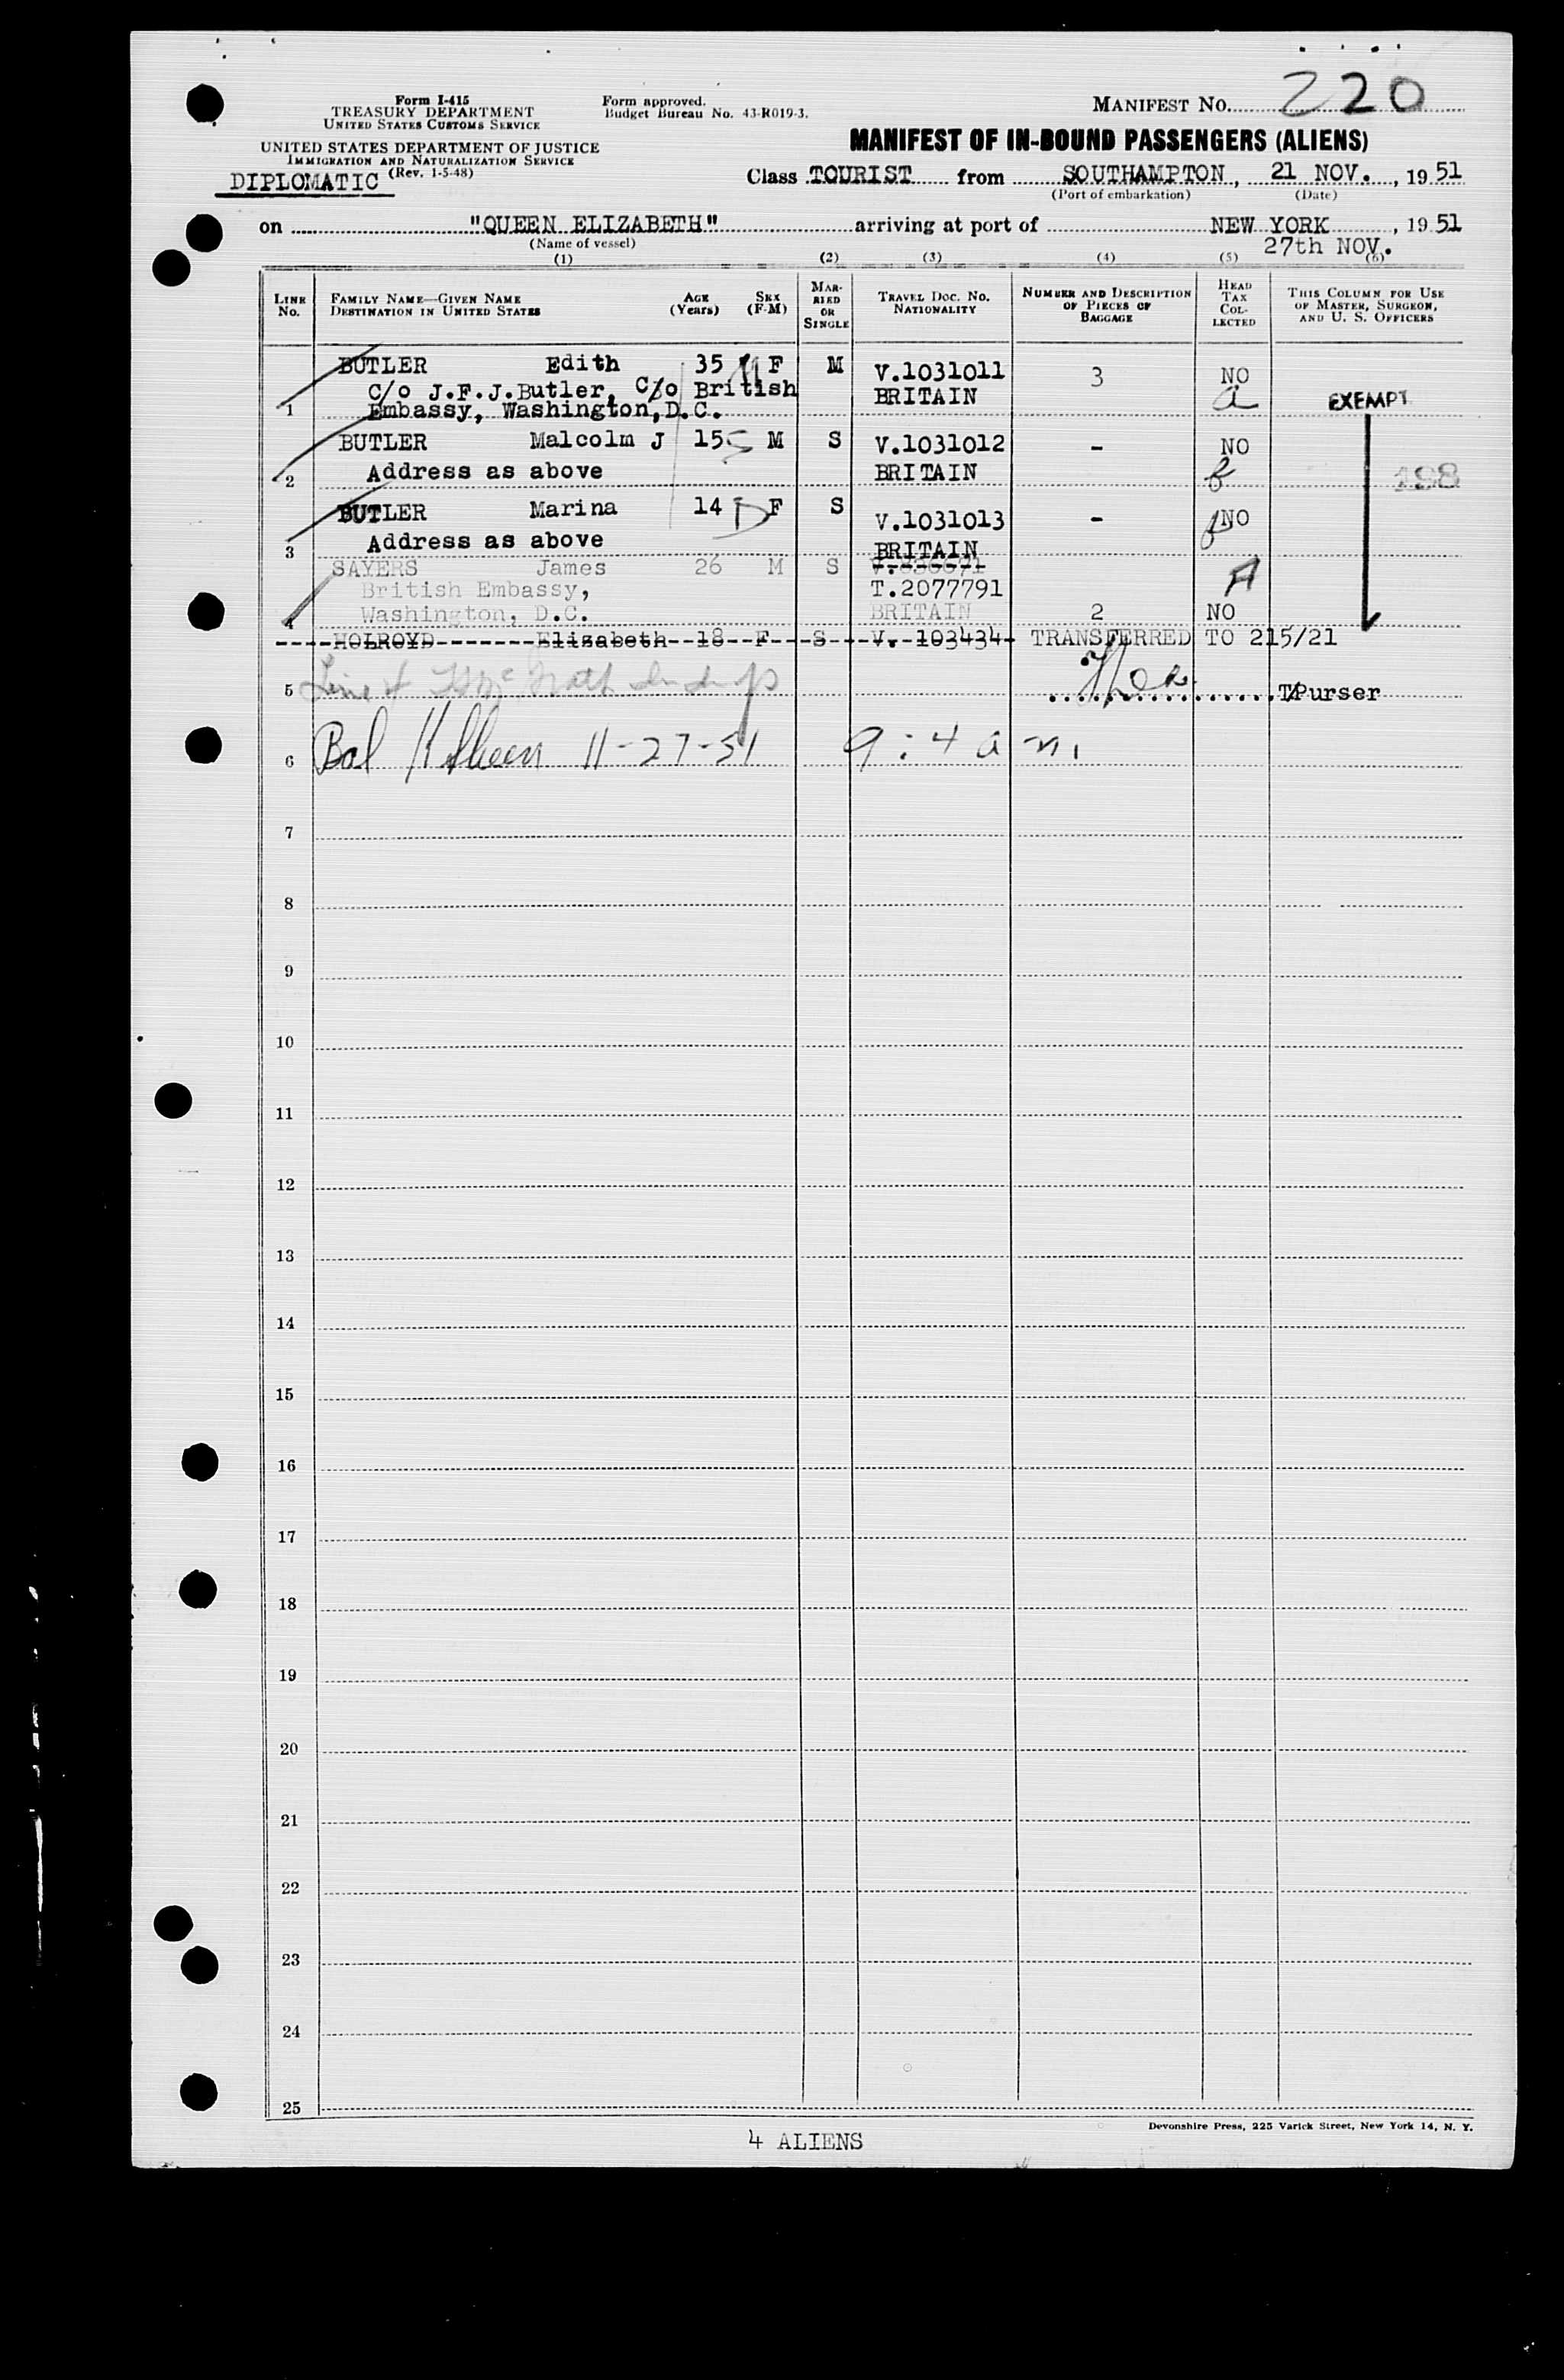 MANIFEST NO. 220
Form I-415
TREASURY DEPARTMENT
UNITED STATES CUSTOMS SERVICE
Form approved.
Budget Bureau No. 43-R019-3.
UNITED STATES DEPARTMENT OF JUSTICE
IMMIGRATION AND NATURALIZATION SERVICE
(Rev. 1-5-48)
DIPLOMATIC
MANIFEST OF IN-BOUND PASSENGERS (ALIENS)
Class TOURIST from SOUTHAMPTON, 21 NOV., 1951
(Port of embarkation) (Date)
on "QUEEN ELIZABETH" arriving at port of NEW YORK, 1951
(Name of vessel) 27th NOV.
(1) (2) (3) (4) (5) (6)
LINE NO. FAMILY NAME—GIVEN NAME DESTINATION IN UNITED STATES AGE (YEARS) SEX (F-M) MARRIED OR SINGLE TRAVEL DOC. NO. NATIONALITY NUMBER AND DESCRIPTION OF PIECES OF BAGGAGE HEAD TAX COLLECTED THIS COLUMN FOR USE OF MASTER, SURGEON, AND U. S. OFFICERS
BUTLER Edith 35 M F M V.1031011 3 NO
C/o J.F.J.Butler, C/o British BRITAIN a EXEMPT
1 Embassy, Washington, D.C.
BUTLER Malcolm J 15 S M S V.1031012 - NO
2 Address as above BRITAIN 198
BUTLER Marina 14 D F S V.1031013 - NO
3 Address as above BRITAIN
SAYERS James 26 M S V.836671 A
British Embassy, T.2077791
4 Washington, D.C. BRITAIN 2 NO
HOLROYD Elizabeth 18 F S V. 103434 TRANSFERRED TO 215/21
5 T/Purser
6 11-27-51 9:4 a m.
7
8
9
10
11
12
13
14
15
16
17
18
19
20
21
22
23
24
25
Devonshire Press, 225 Varick Street, New York 14, N. Y.
4 ALIENS